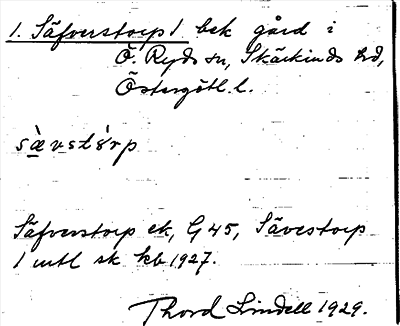 1. Säfverstorp 1 bek gård i
Ö. Ryds sn, Skärkinds hd,
Östergötl. l.
sæ̀vstórp
Säfverstorp ek, G 45, Sävestorp
1 mtl sk kb 1927.
Thord Lindell 1929.